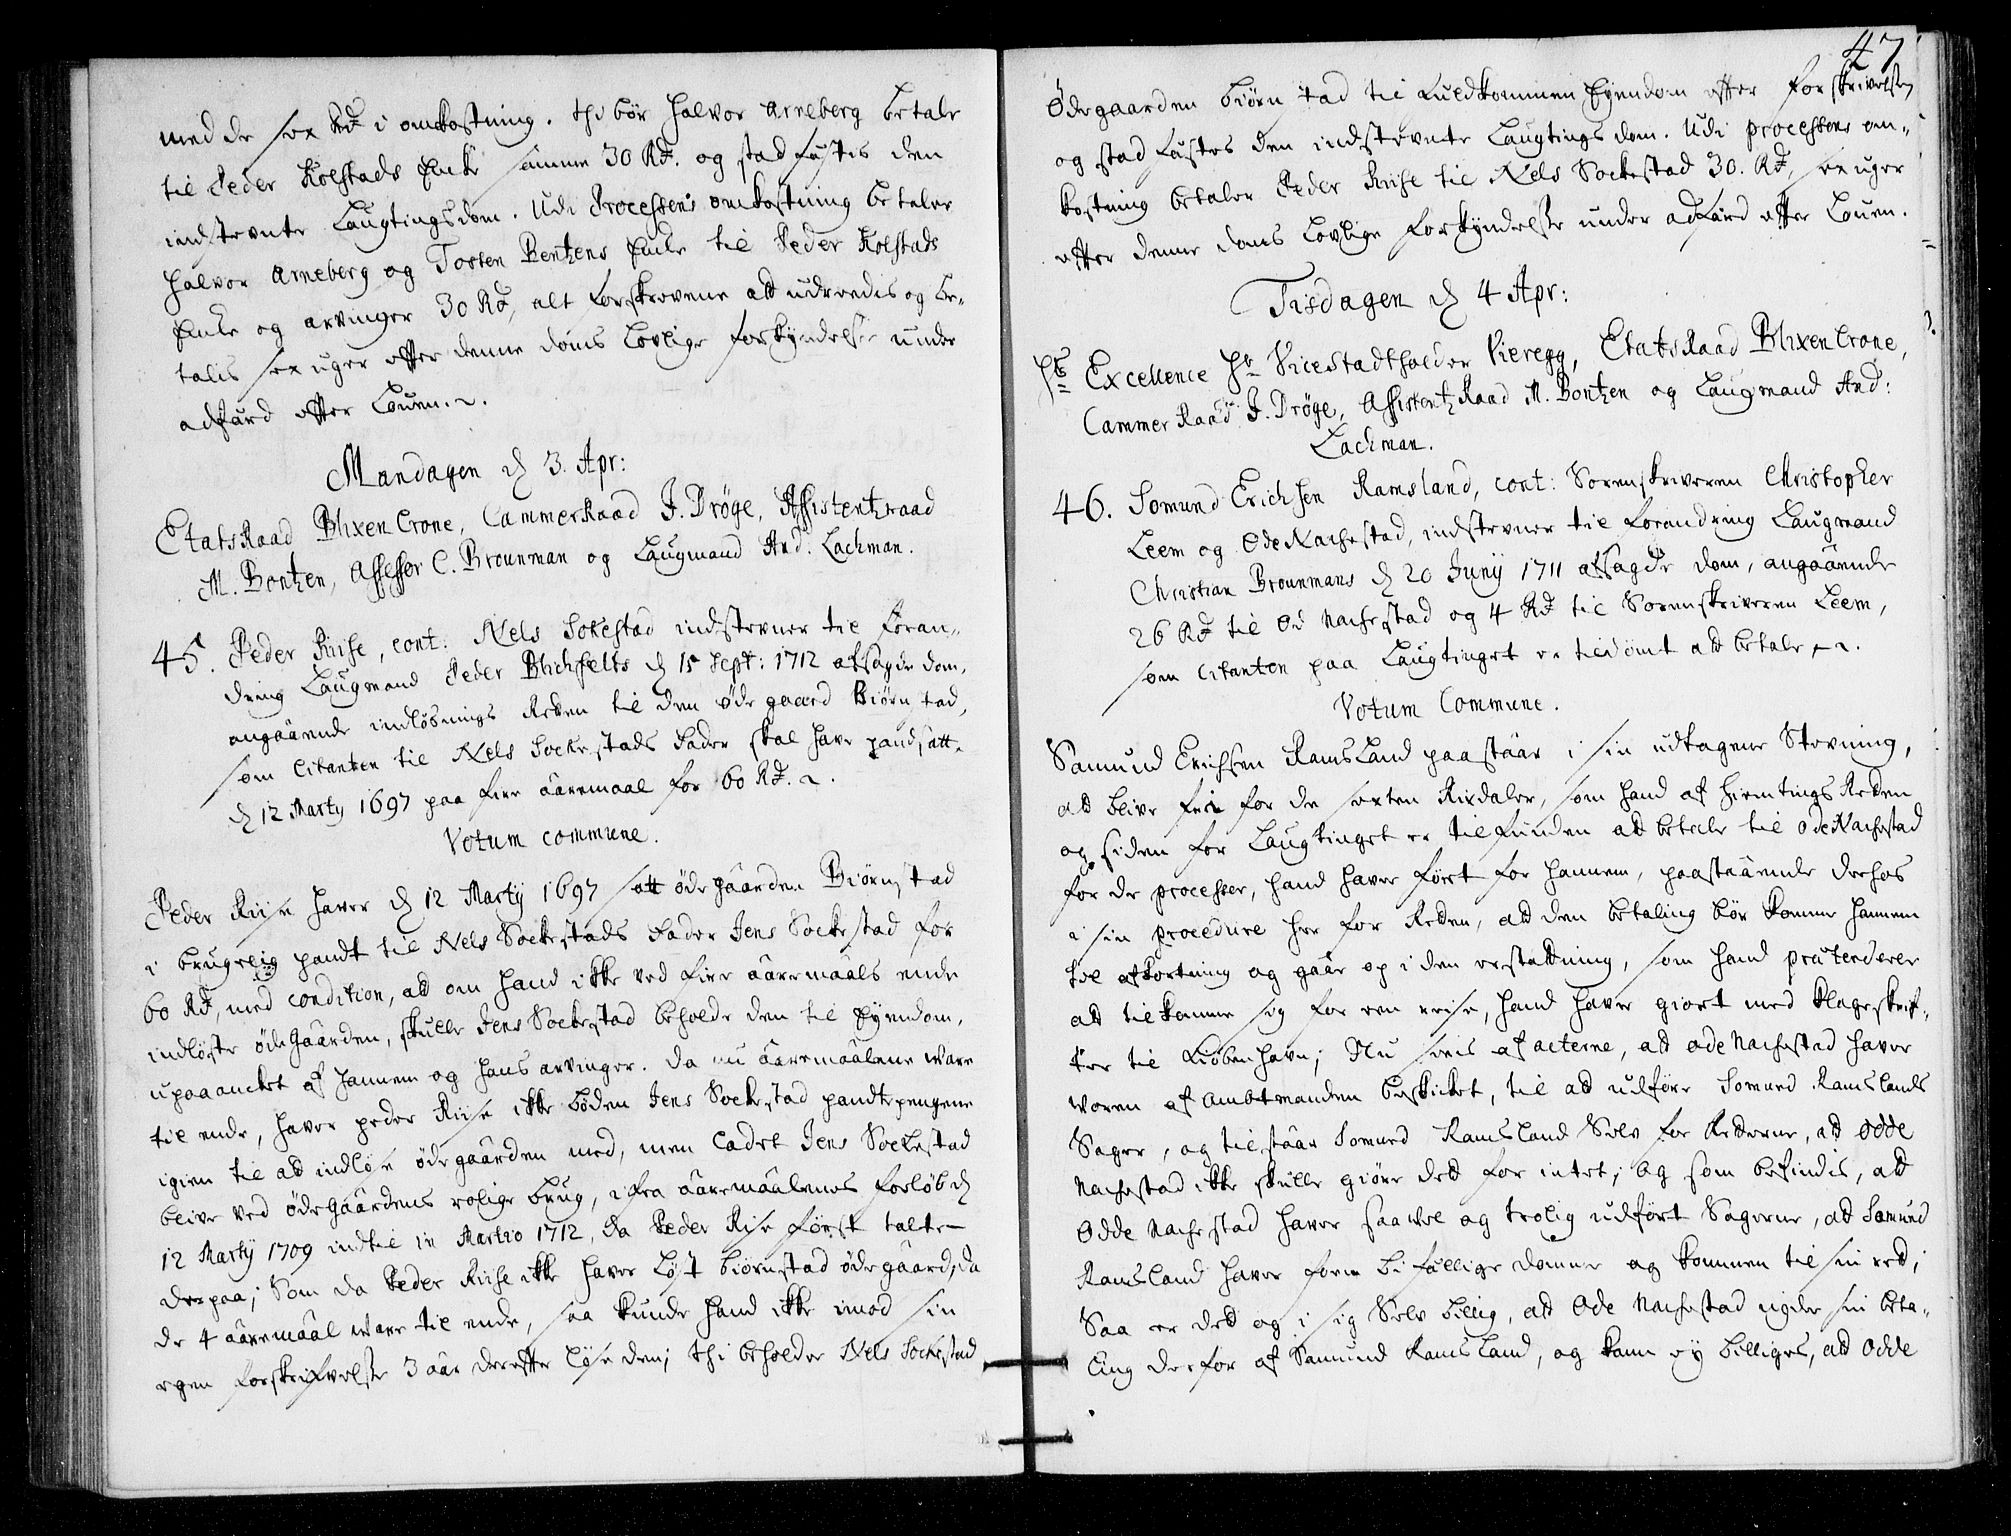 med de sex Rdr i omkostning. thi bör Halvor Arneberg betale
til Peder Kolstads Enke samme 30 Rdr. og stadfæstis den
indstevnte Laugtingsdom. Udi Processens omkostning betaler
Halvor Arneberg og Tosten Bentzens Enke til Peder Kolstads
Enke og arvinger 30 Rdr, alt forskrevene at udreedis og be-
talis sex uger efter denne doms Lovlige forkyndelse under
adfærd efter Loven.
Mandagen d 3. Apr:
EtatsRaad BlixenCrone, CammerRaad J. Dröge, Assistentzraad
M. Bentzen, Assessor C. Brounman og Laugmand And: Lachman.
45. Peder Riise, cont: Nels Sokestad indstevner til foran-
dring Laugmand Peder Blichfelts d 15 Sept: 1712 afsagde dom,
angaaende indlösnings Retten til den ödegaard Biörnstad,
som Citanten til Nels Sockestads Fader skal have pandsatt
d 12 Marty 1697 paa fire aaremaal for 60 Rdr.
Votum commune.
Peder Riise haver d 12 Martij 1697 satt ödegaarden Biörnstad
i brugelig pandt til Nels Sockestads Fader Jens Sockestad for
60 Rdr, med condition, at om hand ikke ved fire aaremaals ende
indlöste ödeGaarden, skulle Jens Sockestad beholde den til Eyendom,
upaaanket af hannem og hans arvinger. Da nu aaremaalene ware
til ende, haver peder Riise ikke böden Jens Sockestad pandtepengene
igien til at indlöse ödegaarden med, men ladet Jens Sockestad
blive ved ödegaardens rolige brug, ifra aaremaalenes forlöb d
12 Martij 1709 indtil in Martio 1712, da Peder Riise först talte
derpaa; Som da Peder Riise ikke haver Löst Biörnstad ödegaard, da
de 4 aaremaal ware til ende, saa kunde hand ikke imod sin
egen forskrifvelse 3 aar derefter löse den; thi beholder Nels Sockestad
47
Ödegaarden Biörnstad til fuldkommen Eyendom efter forskrivelsen
og stadfæstes den indstevnte Laugtings dom. Udi processens om-
kostning betaler Peder Riise til Nels Sockestad 30. Rdr, sex uger
efter denne doms Lovlige forkyndelse under adfærd efter Loven.
Tisdagen d 4 Apr:
Hs Excellence Hr ViceStadtholder Vieregg, EtatsRaad BlixenCrone,
CammerRaad J. Dröge, AssistentzRaad M. Bentzen og Laugmand And:
Lachman.
46. Somund Erichsen Ramsland, cont: Sorenskriveren Christopher
Leem og Ode Nachestad, indstevner til forandring Laugmand
Christian Brounmans d 20 Junij 1711 afsagde dom, angaaende
26 Rdr til Od Nachestad og 4 Rdr til Sorenskriveren Leem,
som Citanten paa Laugtinget er tildömt at betale
Votum Commune.
Samund Erichsen RamsLand paastaar i sin udtagene Stevning,
at blive fri for de sexten Rixdaler, som hand af HiemtingsRetten
og siden for Laugtinget er tilfunden at betale til Ode Nachestad
for de processer, hand haver fört for hannem, paastaaende derhos
i sin procedure her for Retten, at den betaling bör komme hannem
til afkortning og gaar op i den erstattning, som hand prætenderer
at tilkomme sig for een reise, hand haver giort med klageskrif-
ter til Kiöbenhavn; Nu sees af acterne, at Ode Nachestad haver
weren af Ambtmanden beskicket, til at udföre Somund Ramslands
Sager, og tilstaar Somund Ramsland Selv for Retterne, at Odde
Nachestad ikke skulle giöre det for intet; Og som befindis, at
Odde Nachestad haver saavel og trolig udfört Sagerne, at Samund
Ramsland haver facie bifallige domme og kommen til sin ret;
Saa er det og i sig Selv billig, at Ode Nachestad nyder sin beta-
ling derfor af Samund RamsLand, og kann ey billiges, at Odde